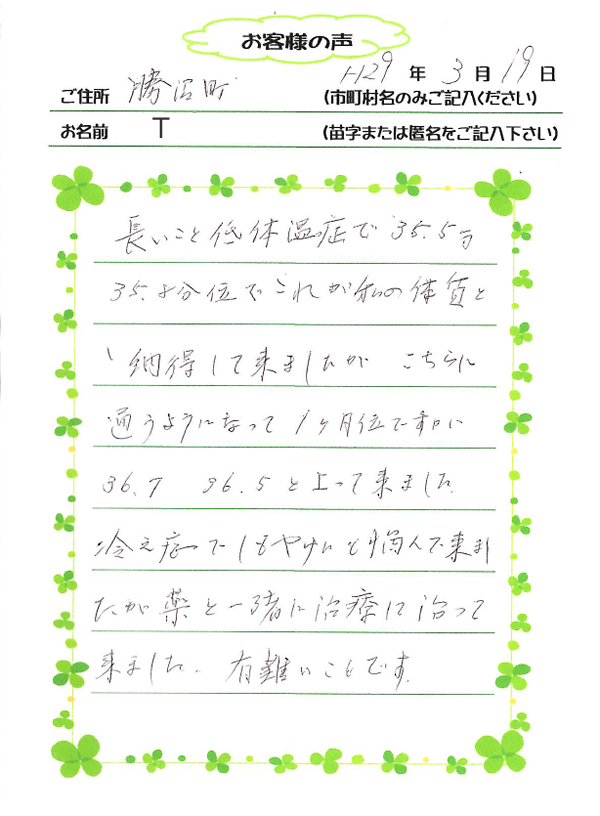 お客様の声
H29 年 3 月 19 日
ご住所 勝沼町 (市町村名のみご記入ください)
お名前 T (苗字または匿名をご記入下さい)
長いこと低体温症で 35.5
35. 分位でこれが私の体質と
納得して来ましたが こちらに
通うようになって 1ヶ月位で
36.7 36.5 と上って来ました
冷え症で しもやけにも悩んで来まし
たが薬と一緒に治療に治って
来ました。有難いことです。